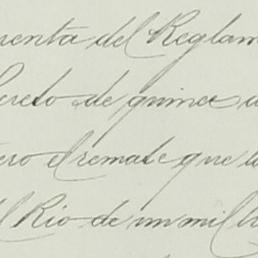 menta del Reglam
creto de quince d
ero el remate que t
l Rio de un mill